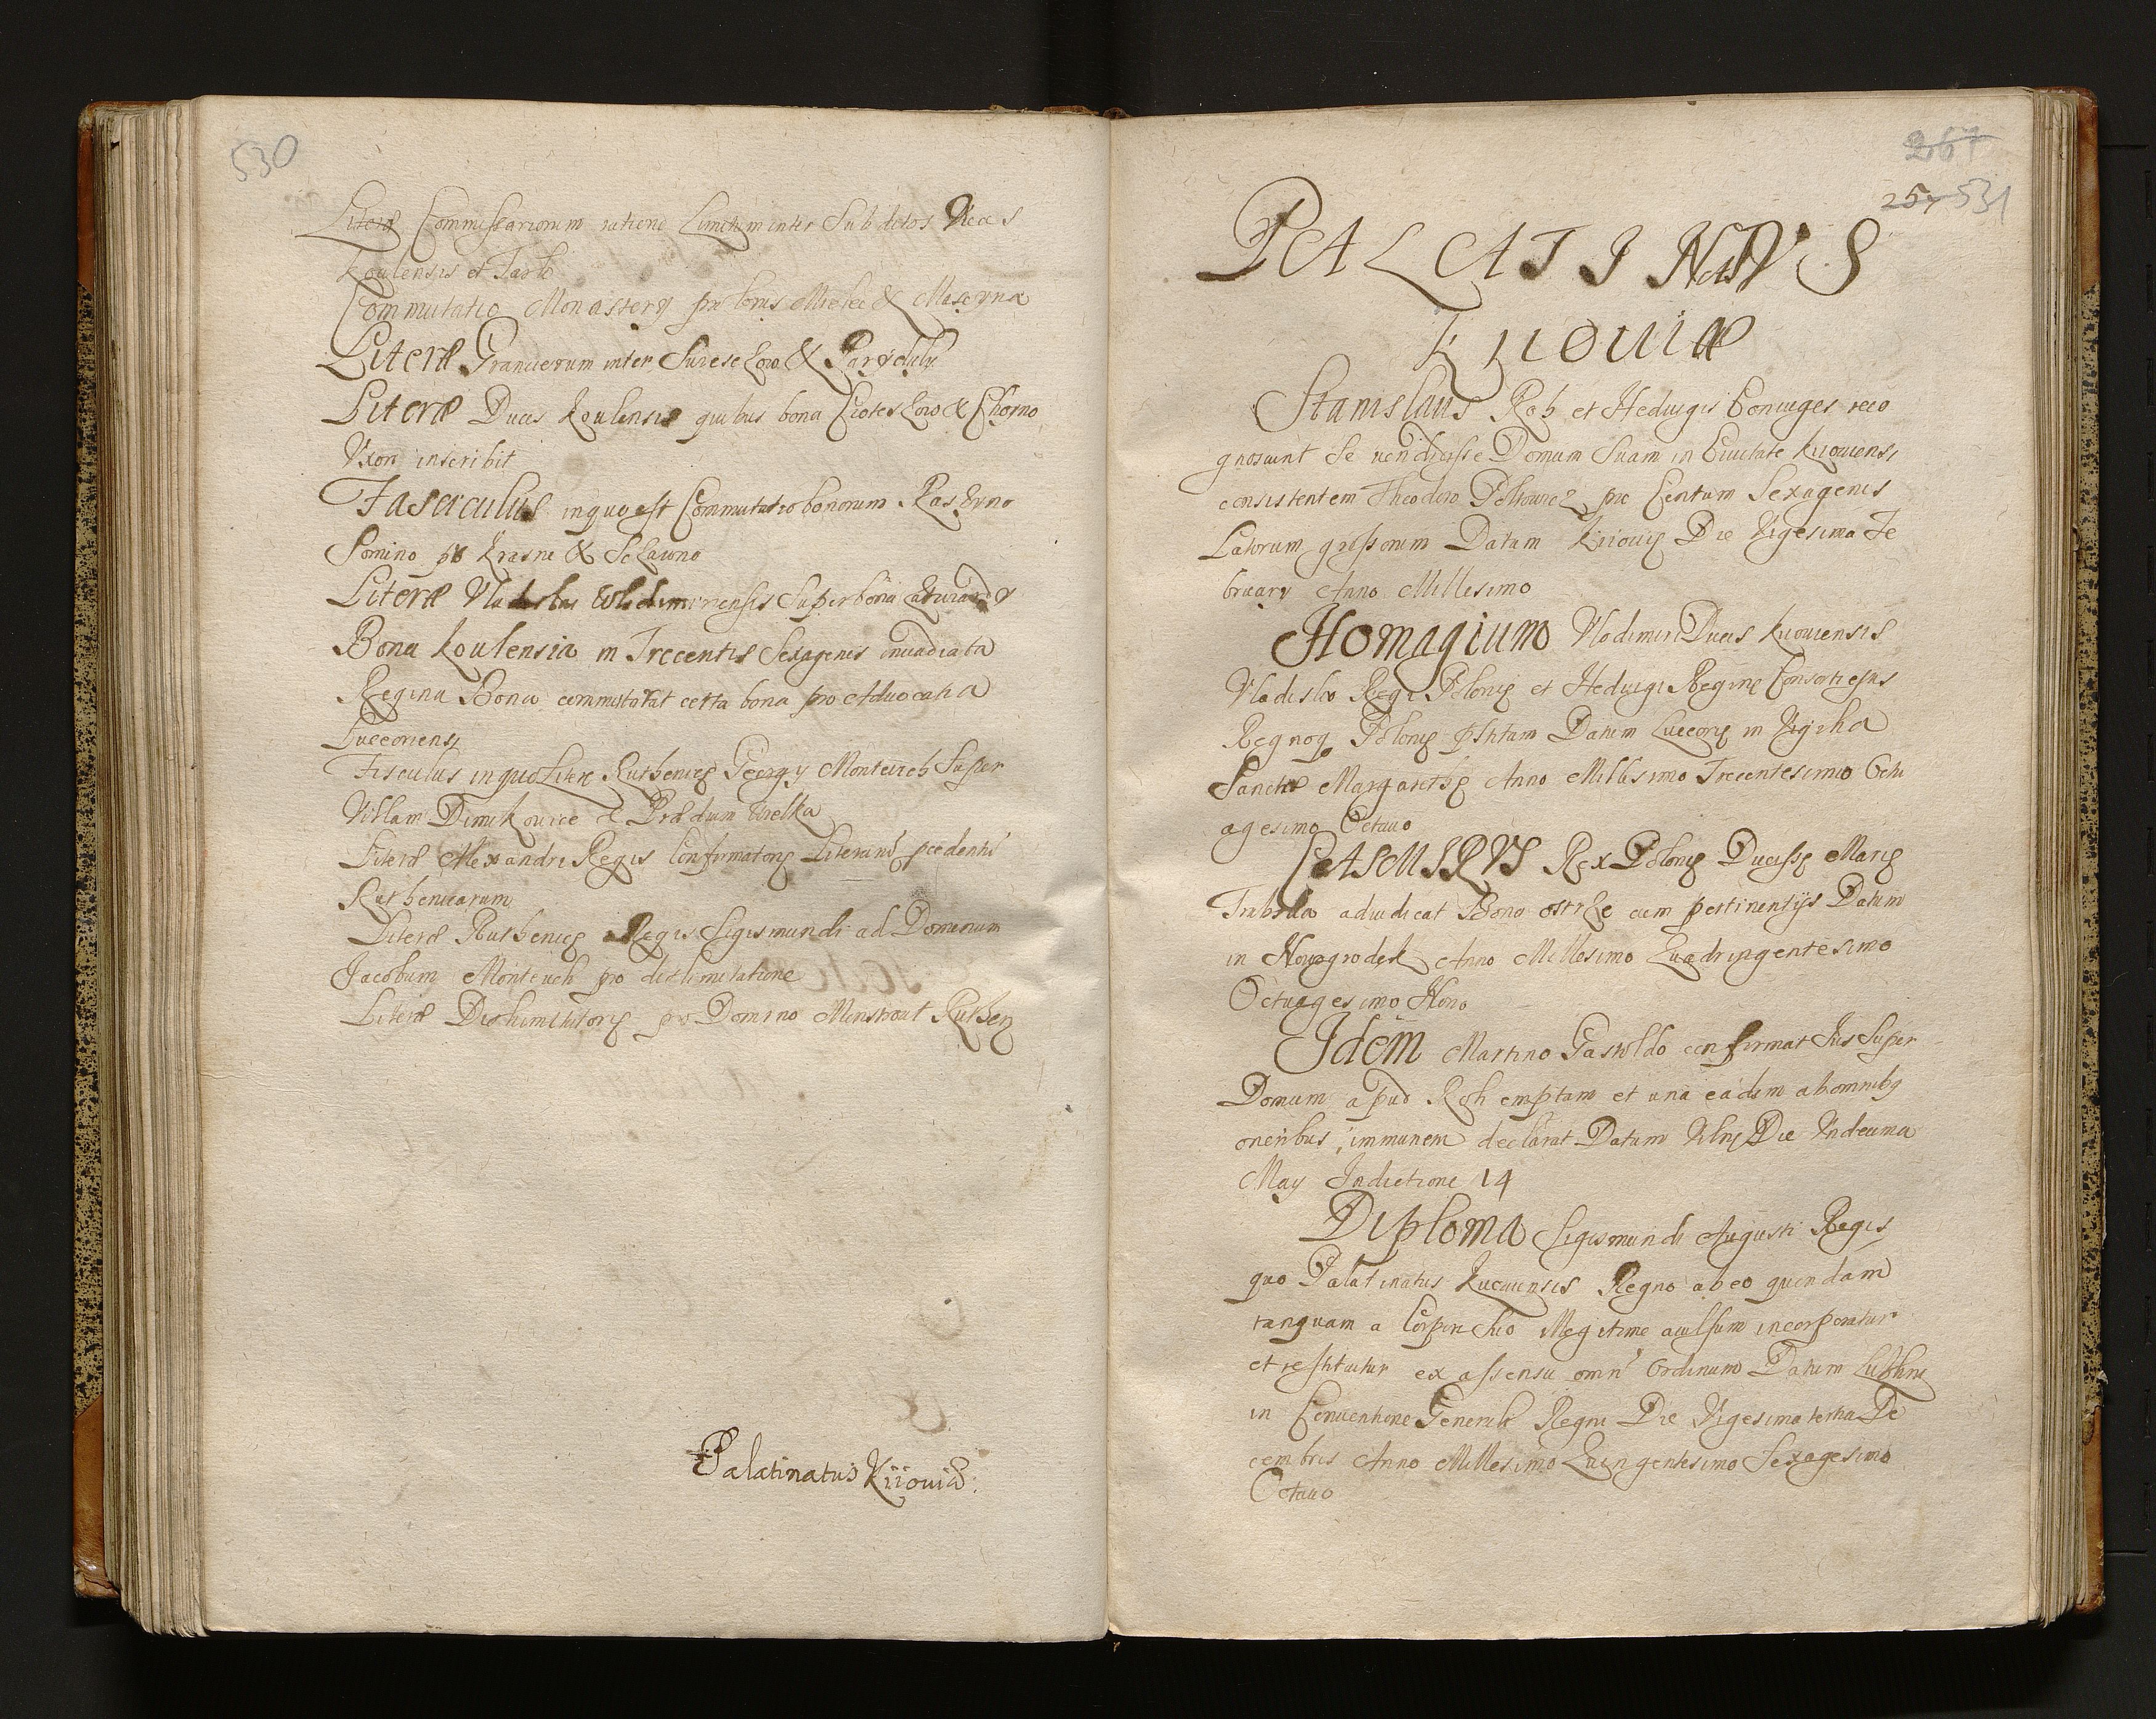 530
Literæ Commissariorum ratione Limitum inter Subditos Ducis
Koulensis et Tarlo
Commutatio Monastery pro bonis Mielce & Maszyna
Literæ Granicierum inter &
Literæ Ducis Koulensis quibus bona &
Vxori inscribit
Fasciculus in quo est Commutatio bonorum
Somino pro Krasne &
Literæ Vladislai Wlodimiriensis Super bona
Bona Koulensia in Trecentis Sexagenis inuadiata
Regina Bona commutatat certa bona pro Aduocatia
Luceoriensi
Fisculus in quo Literæ Ruthenicę Georgy Montewch Super
Villam Dimikowice & Prædium Wielka
Literæ Alexandri Regis Confirmatorię Literarum pcedenti
Ruthenicarum
Literæ Ruthenicę Regis Sigismundi ad Dominum
Jacobum Montewch pro dislimitatione
Literæ Dislimitatorię pro Domino Ruthen
Palatinatus Kiiouiæ.
267
257 531
PALATINATVS
Kiiouiæ
Stanislaus Roh et Heduigis Coniuges reco
gnoscunt Se vendidisse Domum Suam in Ciuitate Kiiouiensi
consistentem Theodoro pro Centum Sexagenis
Latorum grossorum Datum Kiiouię Die Vigesima Fe
bruary Anno Millesimo
Homagium Vladimiri Ducis Kiiouiensis
Vladislao Regi Polonię et Heduigi Reginę Consorti ejus
Regnoq Polonię pstitum Datum Luceorię in Vigilia
Sanctæ Margarethę Anno Millesimo Trecentesimo Octu
agesimo Octauo
CASMIRVS Rex Polonię Ducissę Marię
Trabska adiudicat Bona ostrze cum pertinentijs Datum
in Nowogrodek Anno Millesimo Quadringentesimo
Octuagesimo Nono
Idem Martino Gastoldo confirmat Ius Super
Domum apud Roh emptam et una eadem ab omnibq
oneribus immunem declarat Datum Vilnę Die Vndecima
May Indictione 14
Diploma Sigismundi Augusti Regis
quo Palatinatus Kiiouiensis Regno ab eo quondam
tanquam a Corpore Suo illegitime auulsum incorporatur
et restituitur ex assensu omn Ordinum Datum Lublini
in Conuentione Generali Regni Die Vigesima tertia De
cembris Anno Millesimo Quingentesimo Sexagesimo
Octauo